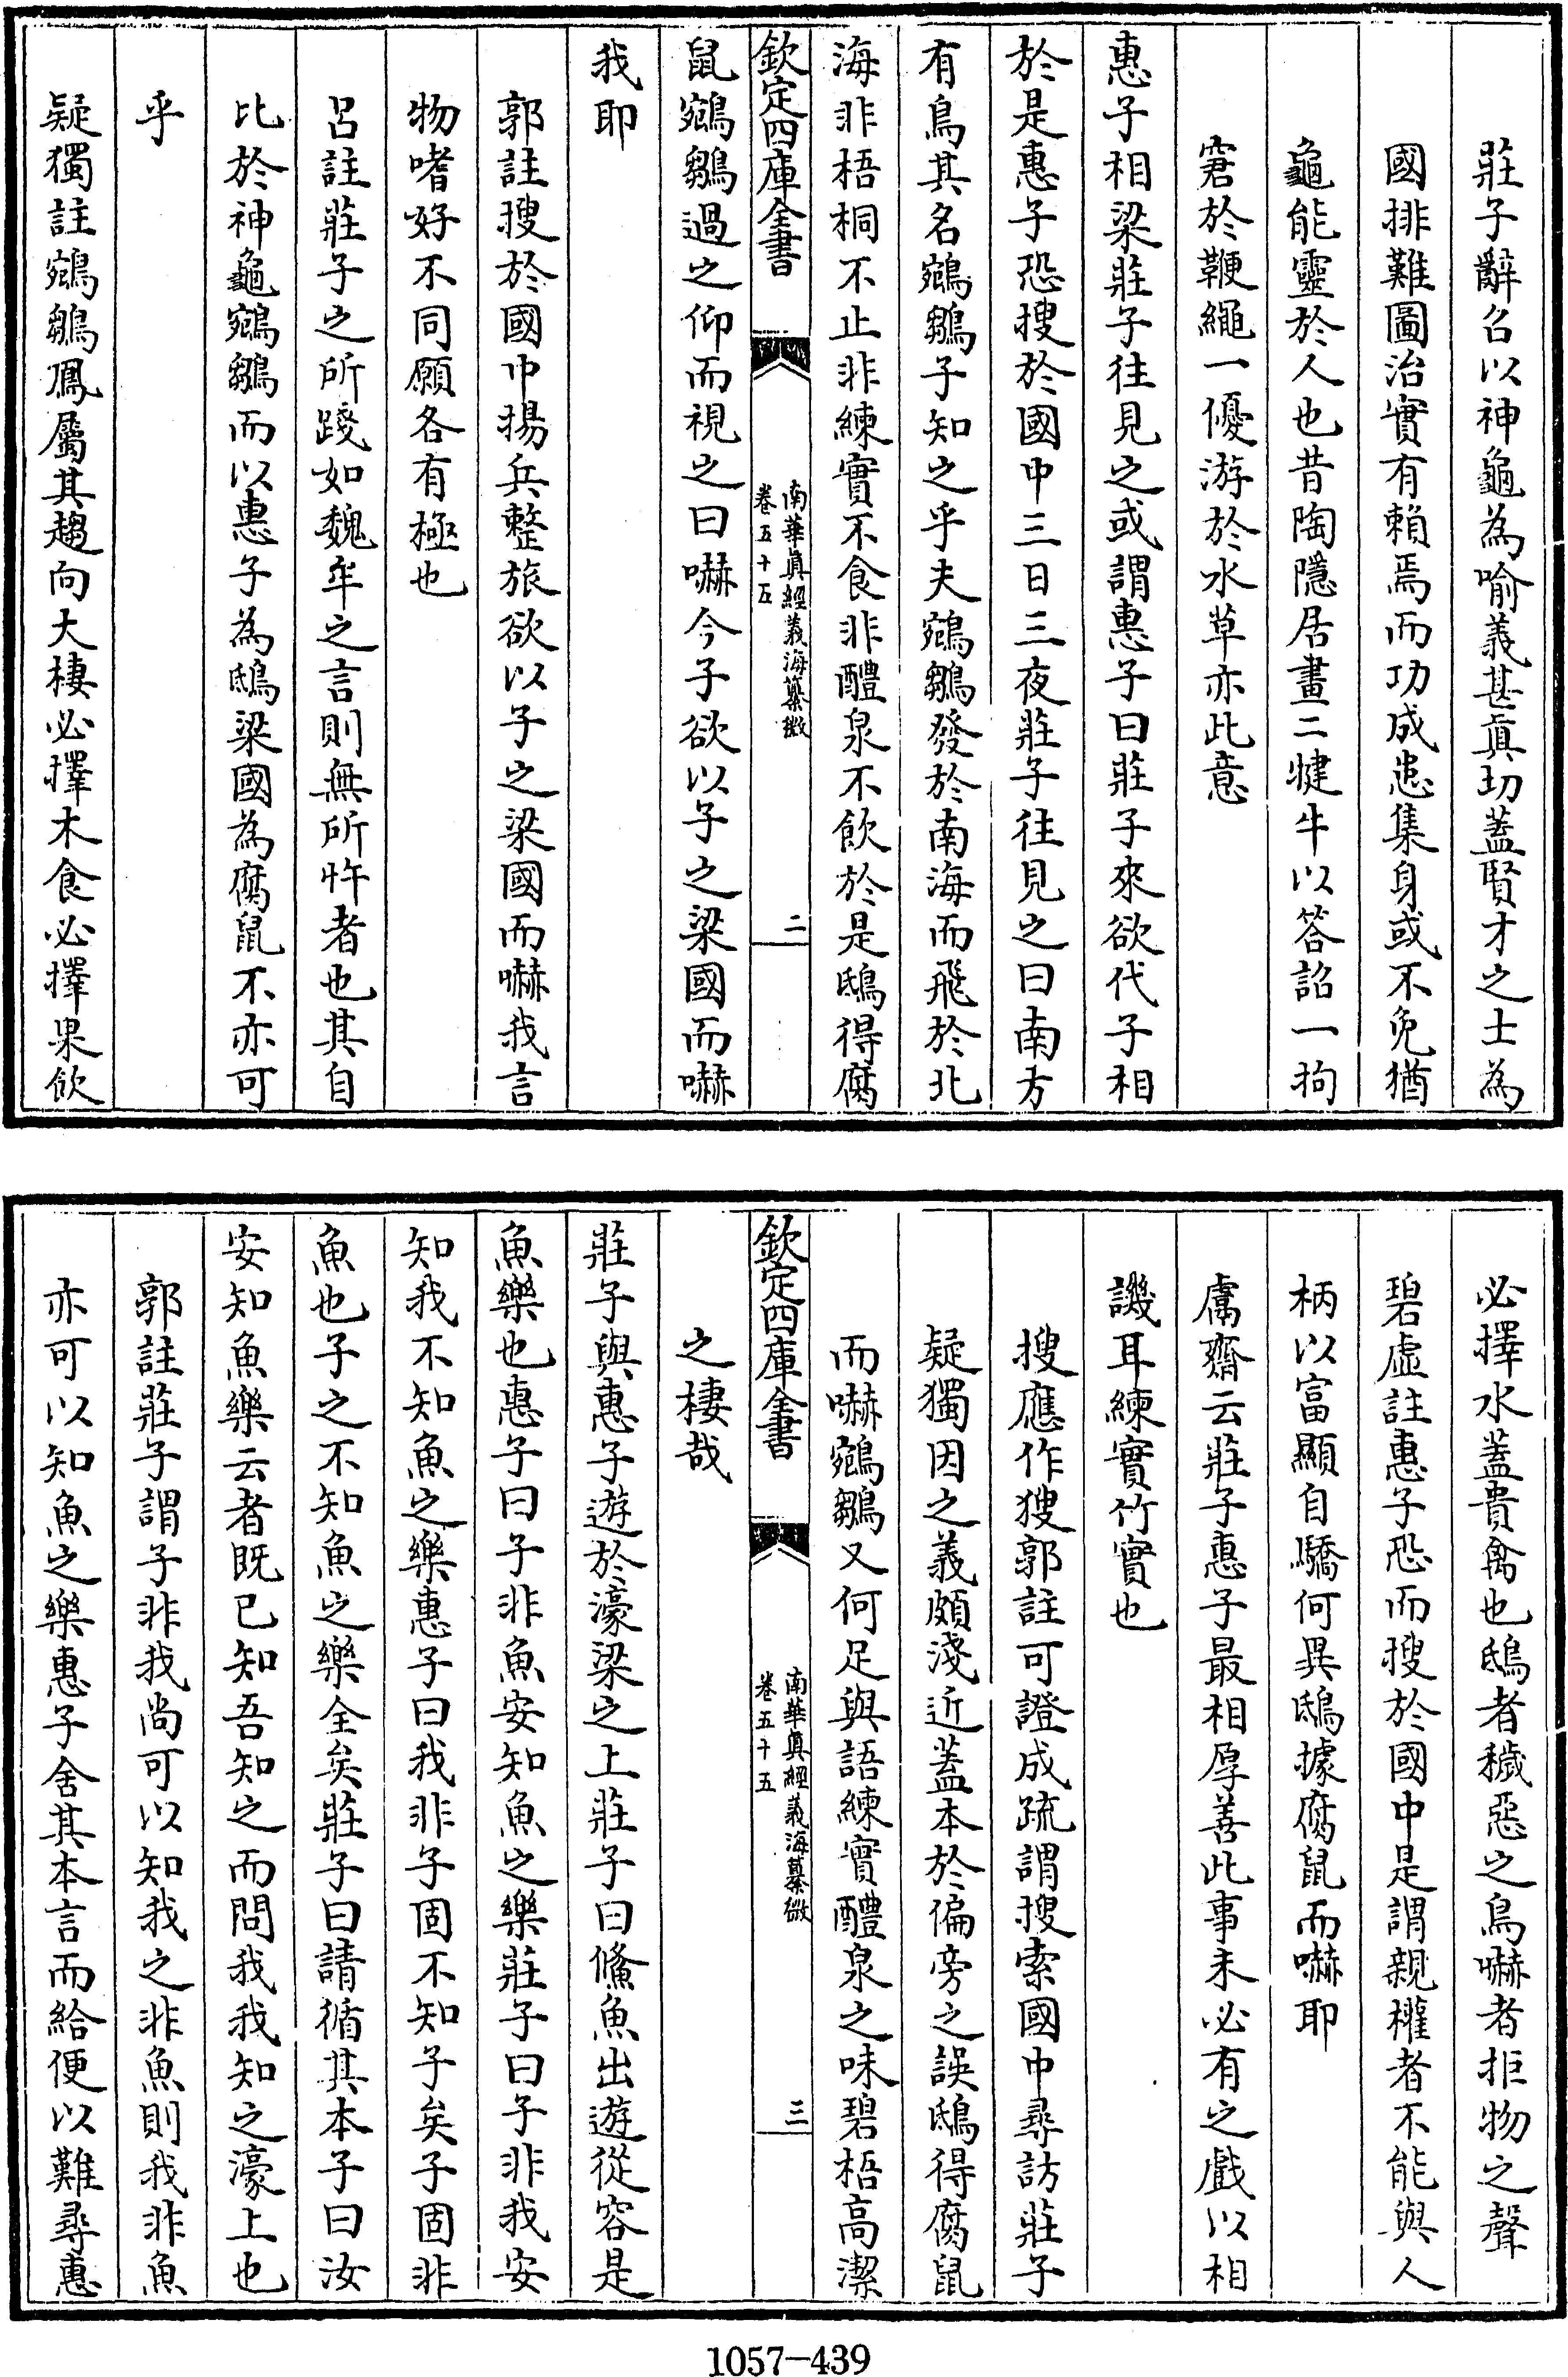 莊子辭召以神龜為喻義甚真切蓋賢才之士為
國排難圖治實有賴焉而功成患集身或不免猶
龜能靈於人也昔陶隱居畫二犍牛以答詔一拘
窘於鞭繩一優游於水草亦此意
惠子相梁莊子往見之或謂惠子曰莊子來欲代子相
於是惠子恐搜於國中三日三夜莊子往見之曰南方
有鳥其名鵷鶵子知之乎夫鵷鶵發於南海而飛於北
海非梧桐不止非練實不食非醴泉不飲於是鴟得腐
欽定四庫全書
南華真經義海纂微
卷五十五
二
鼠鵷鶵過之仰而視之曰嚇今子欲以子之梁國而嚇
我耶
郭註搜於國中揚兵整旅欲以子之梁國而嚇我言
物嗜好不同願各有極也
呂註莊子之所踐如魏牟之言則無所忤者也其自
比於神龜鵷鶵而以惠子為鴟梁國為腐鼠不亦可
乎
疑獨註鵷鶵鳳屬其趨向大棲必擇木食必擇果飲
必擇水蓋貴禽也鴟者穢惡之鳥嚇者拒物之聲
碧虛註惠子恐而搜於國中是謂親權者不能與人
柄以富顯自驕何異鴟據腐鼠而嚇耶
鬳齋云莊子惠子最相厚善此事未必有之戲以相
譏耳練實竹實也
搜應作獀郭註可證成疏謂搜索國中尋訪莊子
疑獨因之義頗淺近蓋本於偏旁之誤鴟得腐鼠
而嚇鵷鶵又何足與語練實醴泉之味碧梧高潔
欽定四庫全書
南華真經義海纂微
卷五十五
三
之棲哉
莊子與惠子遊於濠梁之上莊子曰鯈魚出遊從容是
魚樂也惠子曰子非魚安知魚之樂莊子曰子非我安
知我不知魚之樂惠子曰我非子固不知子矣子固非
魚也子之不知魚之樂全矣莊子曰請循其本子曰汝
安知魚樂云者既已知吾知之而問我我知之濠上也
郭註莊子謂子非我尚可以知我之非魚則我非魚
亦可以知魚之樂惠子舍其本言而給便以難尋惠
1057-439